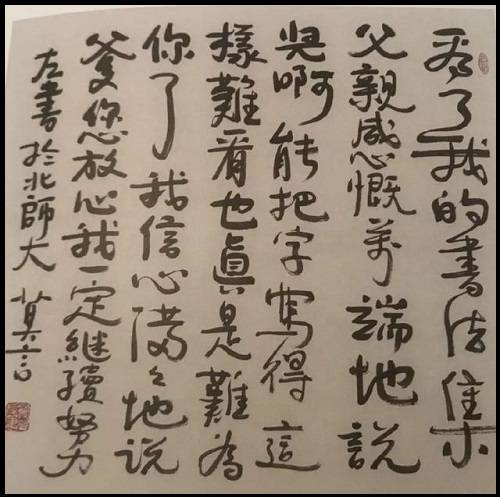 看了我的書法集
父親感慨萬端地說
兒啊能把字寫得這
樣難看也真是難為
你了我信心滿々地説
爹您放心我一定繼續努力
左書於北師大 莫言